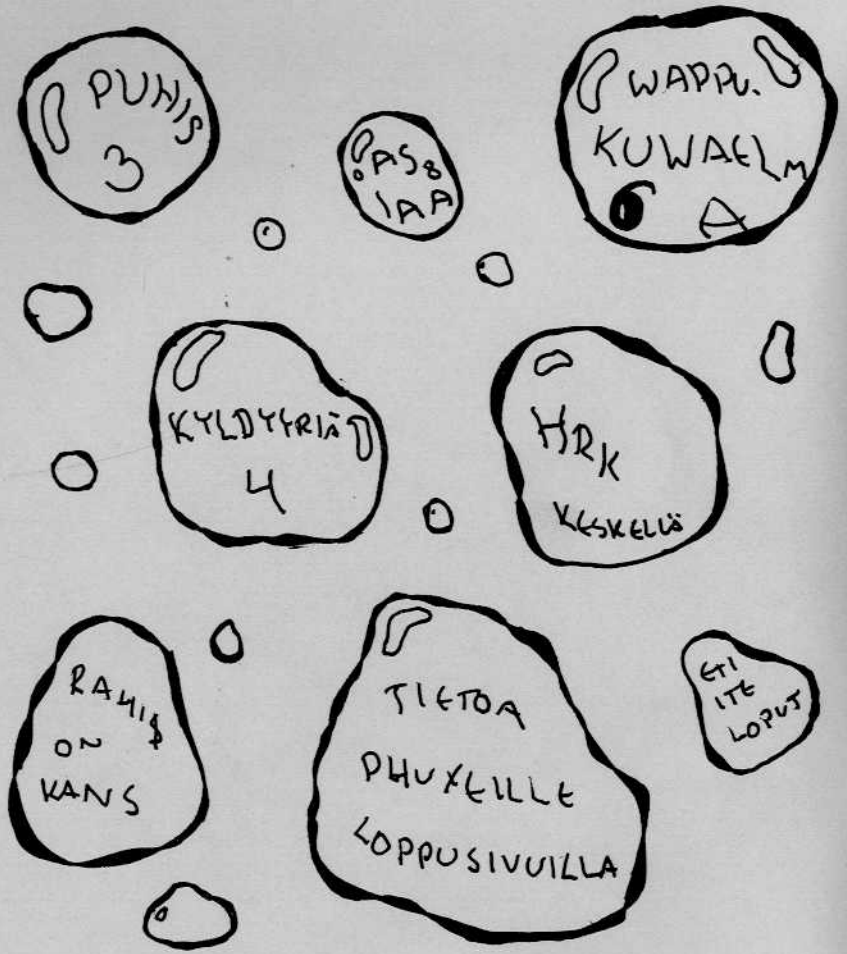 PUHIS
3
ASB
IAA
WAPPU.
KUWAELM
6 A
KYLDYYRIÄ
4
HRK
KESKELLÄ
RAHIS
ON
KANS
TIETOA
PHUXEILLE
LOPPUSIVUILLA
ETI
ITE
LOPUT